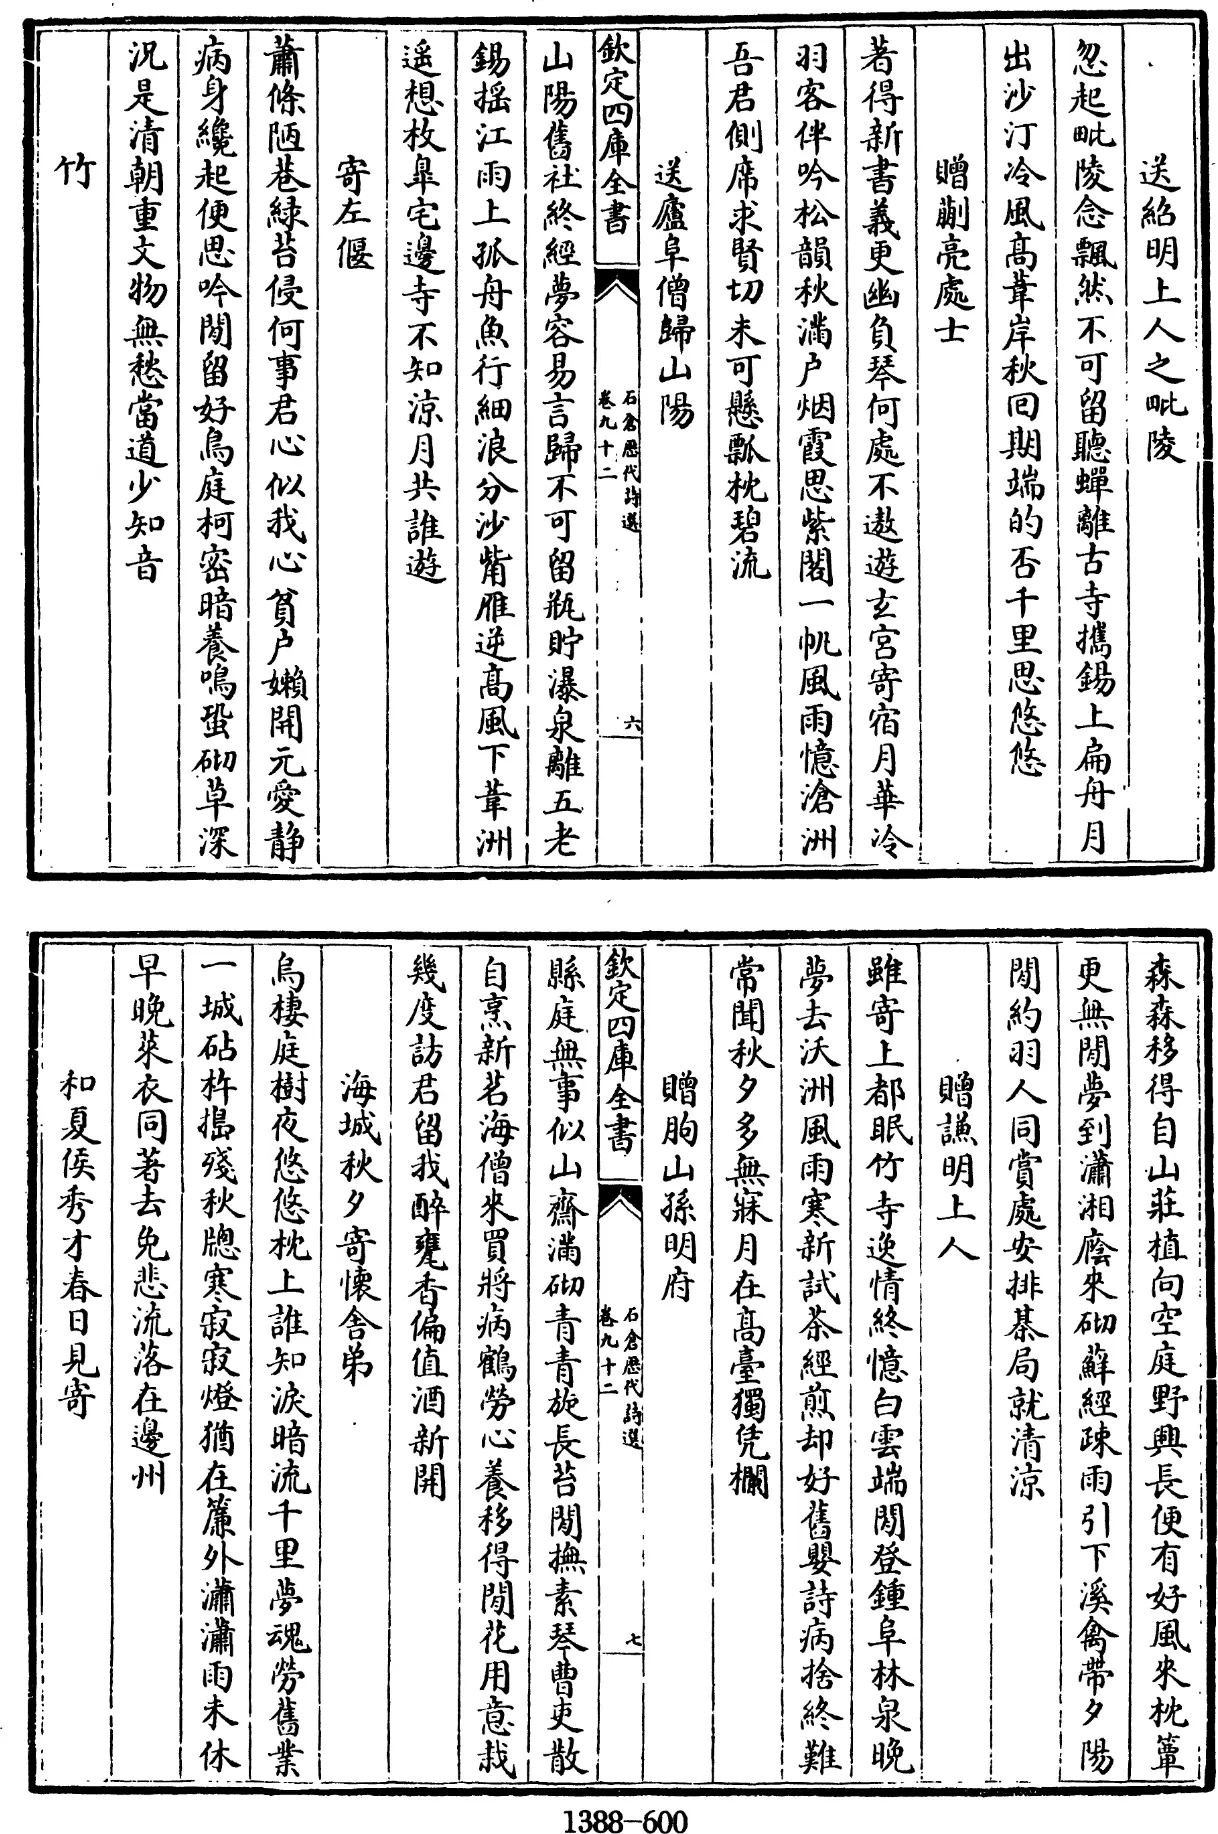 送紹明上人之毗陵
忽起毗陵念飄然不可留聽蟬離古寺攜錫上扁舟月
出沙汀冷風高葦岸秋回期端的否千里思悠悠
贈蒯亮處士
著得新書義更幽負琴何處不遨遊玄宮寄宿月華冷
羽客伴吟松韻秋滿户烟霞思紫閣一帆風雨憶滄洲
吾君側席求賢切未可懸瓢枕碧流
送廬阜僧歸山陽
欽定四庫全書
石倉歷代詩選
卷九十二
六
山陽舊社終經夢容易言歸不可留瓶貯瀑泉離五老
錫摇江雨上孤舟魚行細浪分沙觜雁逆高風下葦洲
遥想枚臯宅邊寺不知涼月共誰遊
寄左偃
蕭條陋巷緑苔侵何事君心似我心貧户嬾開元愛静
病身纔起便思吟閒留好鳥庭柯密暗養鳴蛩砌草深
況是清朝重文物無愁當道少知音
竹
森森移得自山莊植向空庭野興長便有好風來枕簟
更無閒夢到瀟湘廕來砌蘚經疎雨引下溪禽帶夕陽
閒約羽人同賞處安排棊局就清涼
贈謙明上人
雖寄上都眠竹寺逸情終憶白雲端閒登鍾阜林泉晚
夢去沃洲風雨寒新試茶經煎却好舊嬰詩病捨終難
常聞秋夕多無寐月在高臺獨凭欄
贈朐山孫明府
欽定四庫全書
石倉歷代詩選
卷九十二
七
縣庭無事似山齋滿砌青青旋長苔閒撫素琴曹吏散
自烹新茗海僧來買將病鶴勞心養移得閒花用意栽
幾度訪君留我醉甕香偏值酒新開
海城秋夕寄懷舍弟
烏棲庭樹夜悠悠枕上誰知淚暗流千里夢魂勞舊業
一城砧杵搗殘秋牕寒寂寂燈猶在簾外瀟瀟雨未休
早晚萊衣同著去免悲流落在邊州
和夏侯秀才春日見寄
1388-600